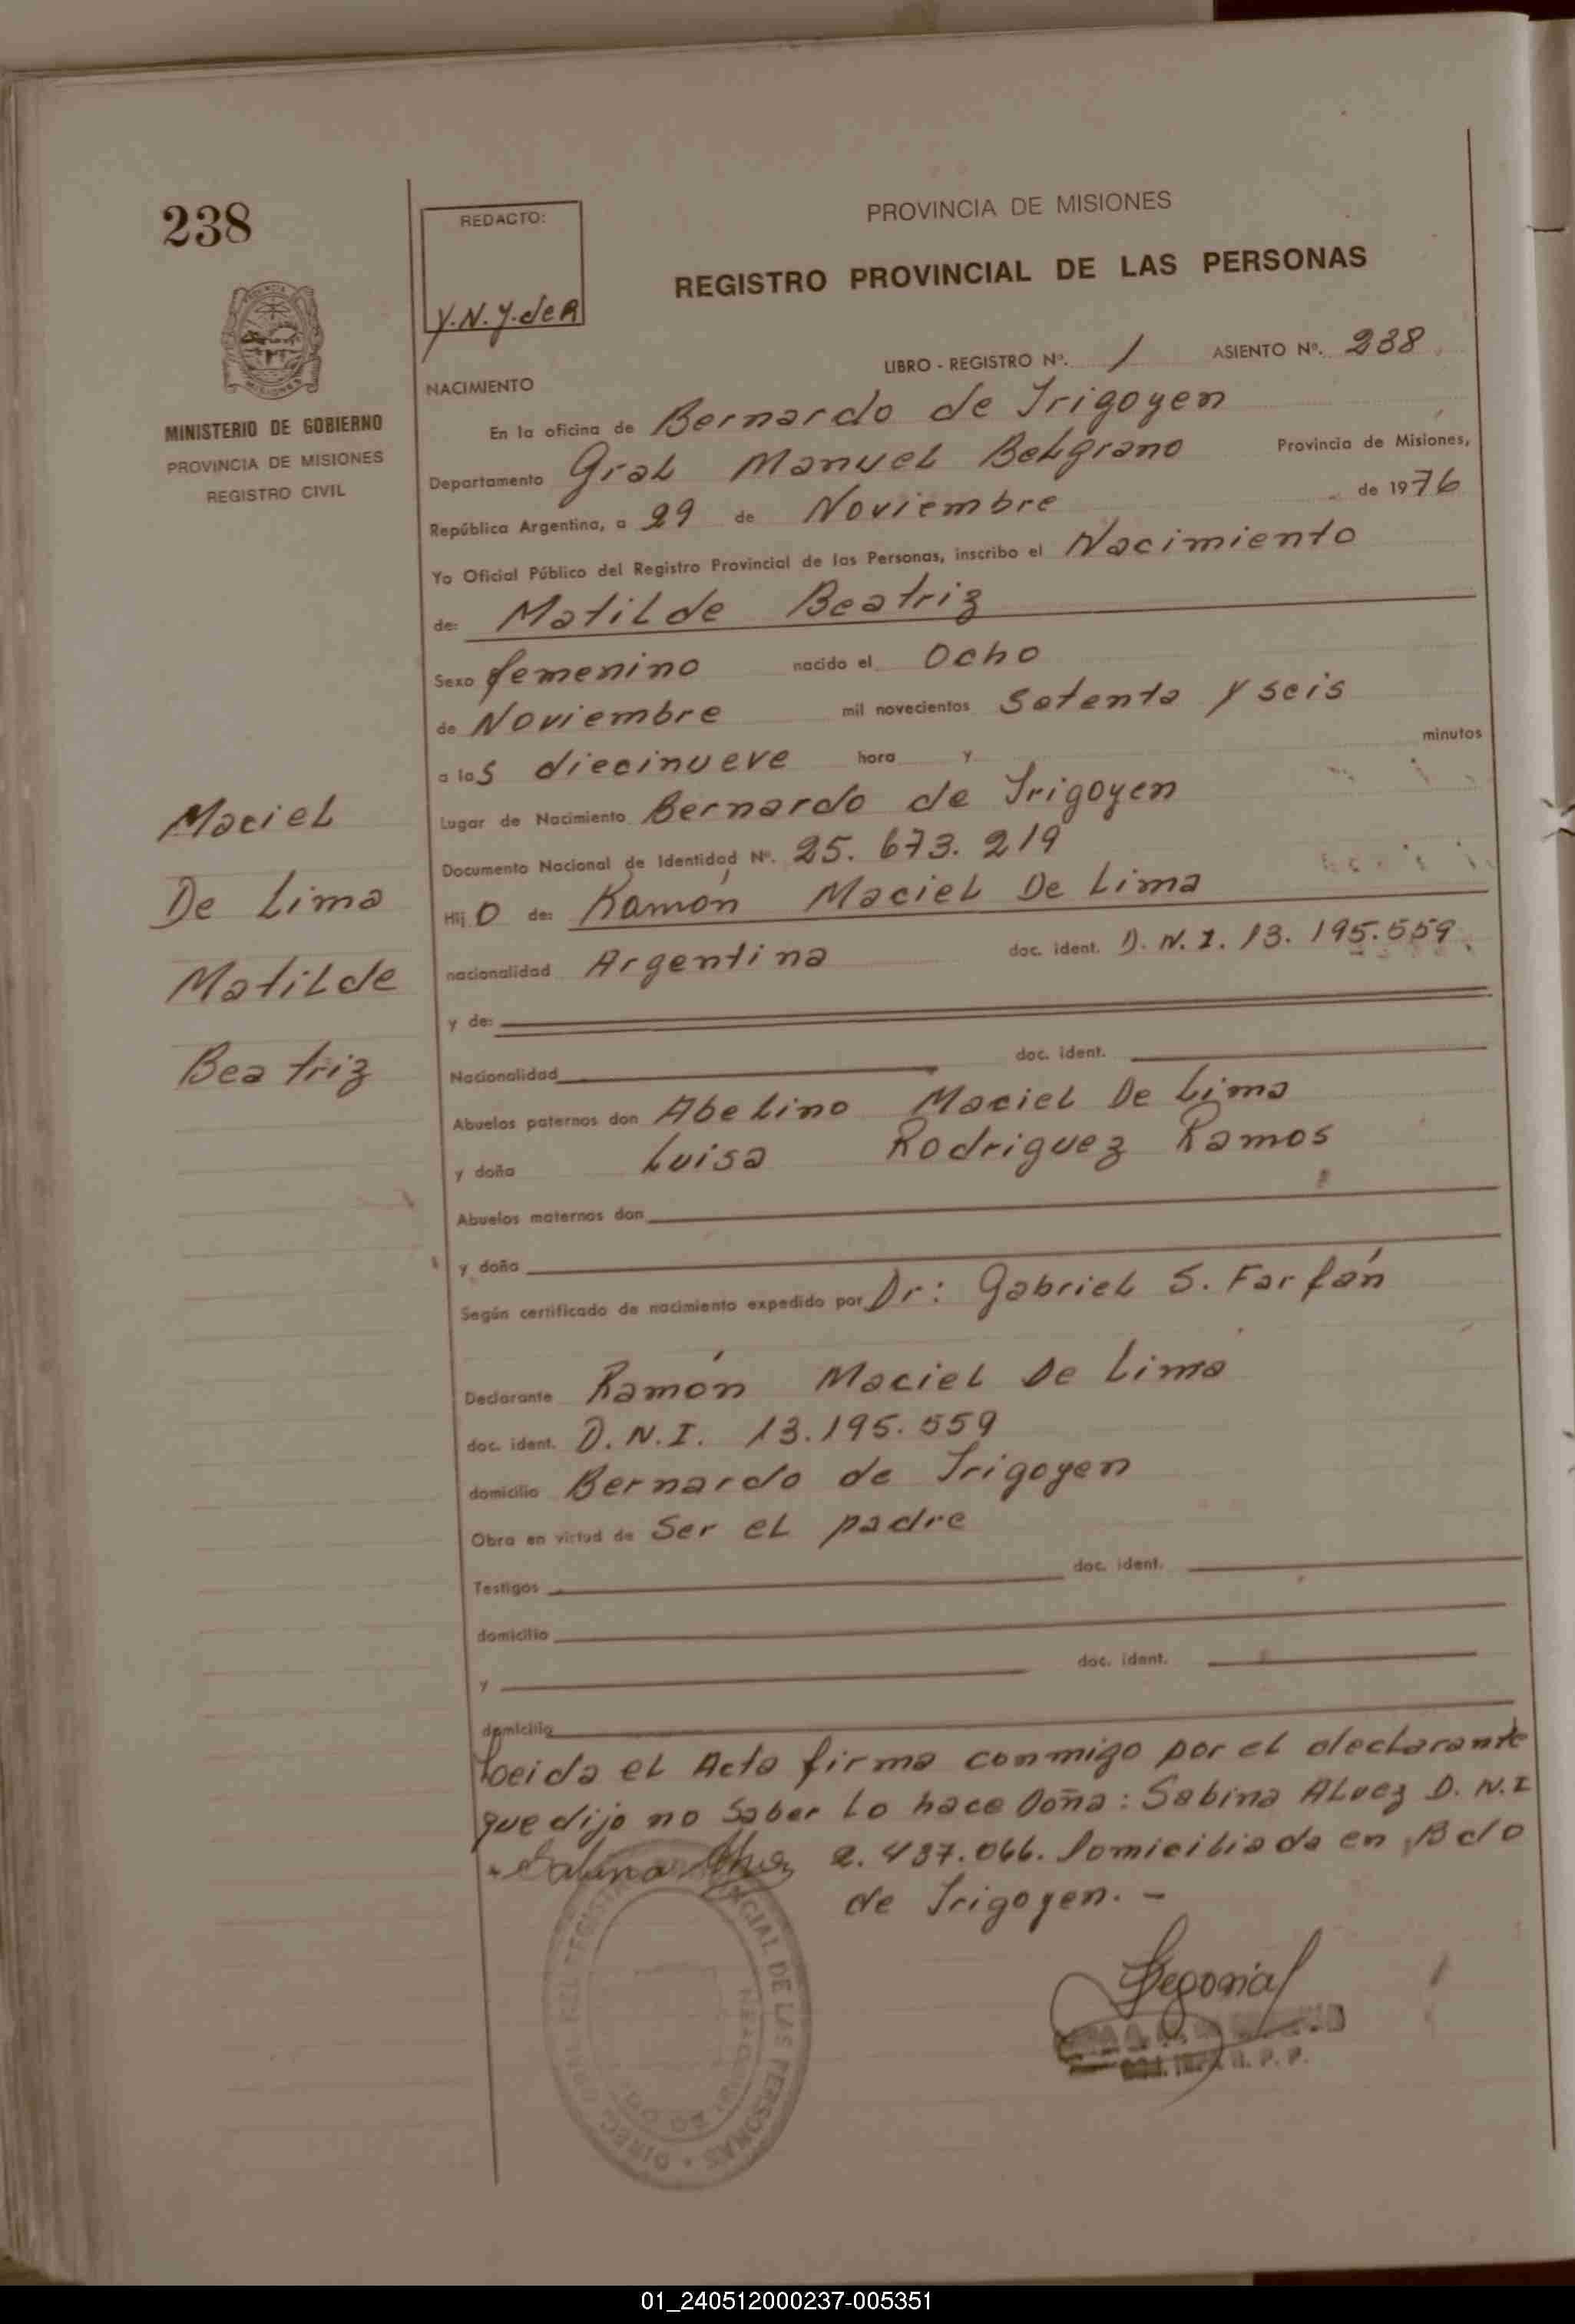 238
REDACTO:
Y.N.Y.deR
PROVINCIA DE MISIONES
REGISTRO PROVINCIAL DE LAS PERSONAS
LIBRO - REGISTRO Nº. 1 ASIENTO Nº. 238
NACIMIENTO
MINISTERIO DE GOBIERNO
PROVINCIA DE MISIONES
REGISTRO CIVIL
En la oficina de Bernardo de Irigoyen
Departamento Gral Manuel Belgrano Provincia de Misiones,
República Argentina, a 29 de Noviembre de 1976
Yo Oficial Público del Registro Provincial de las Personas, inscribo el Nacimiento
de: Matilde Beatriz
Sexo femenino nacido el Ocho
de Noviembre mil novecientos setenta y seis
a las diecinueve hora y minutos
Lugar de Nacimiento Bernardo de Irigoyen
Documento Nacional de Identidad Nº. 25.673.219
Hij O de: Ramón Maciel De Lima
nacionalidad Argentina doc. ident. D.N.I. 13.195.559
y de:
Nacionalidad doc. ident.
Abuelos paternos don Abelino Maciel De Lima
y doña Luisa Rodriguez Ramos
Abuelos maternos don
y doña
Según certificado de nacimiento expedido por Dr: Gabriel S. Farfán
Declarante Ramón Maciel De Lima
doc. ident. D.N.I. 13.195.559
domicilio Bernardo de Irigoyen
Obra en virtud de Ser el padre
Testigos doc. ident.
domicilio
y doc. ident.
domicilio
Leida el Acta firma conmigo por el declarante
que dijo no saber lo hace Doña: Sabina Alvez D.N.I
Sabina Alvez 2.437.066. Domiciliada en Bdo
de Irigoyen. -
Maciel
De Lima
Matilde
Beatriz
Segovia
01_240512000237-005351